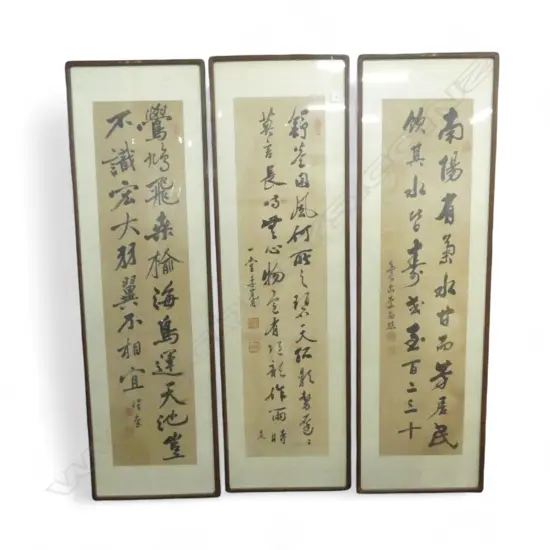 南陽有菊水甘而芳居民
飲其水皆壽或至百二三十
舒卷因風何所之碧天孤影勢遲〻
莫言長無心物有從龍作雨時
鷽鳩飛桑榆海鳥運天池豈
不識宏大羽翼不相宜